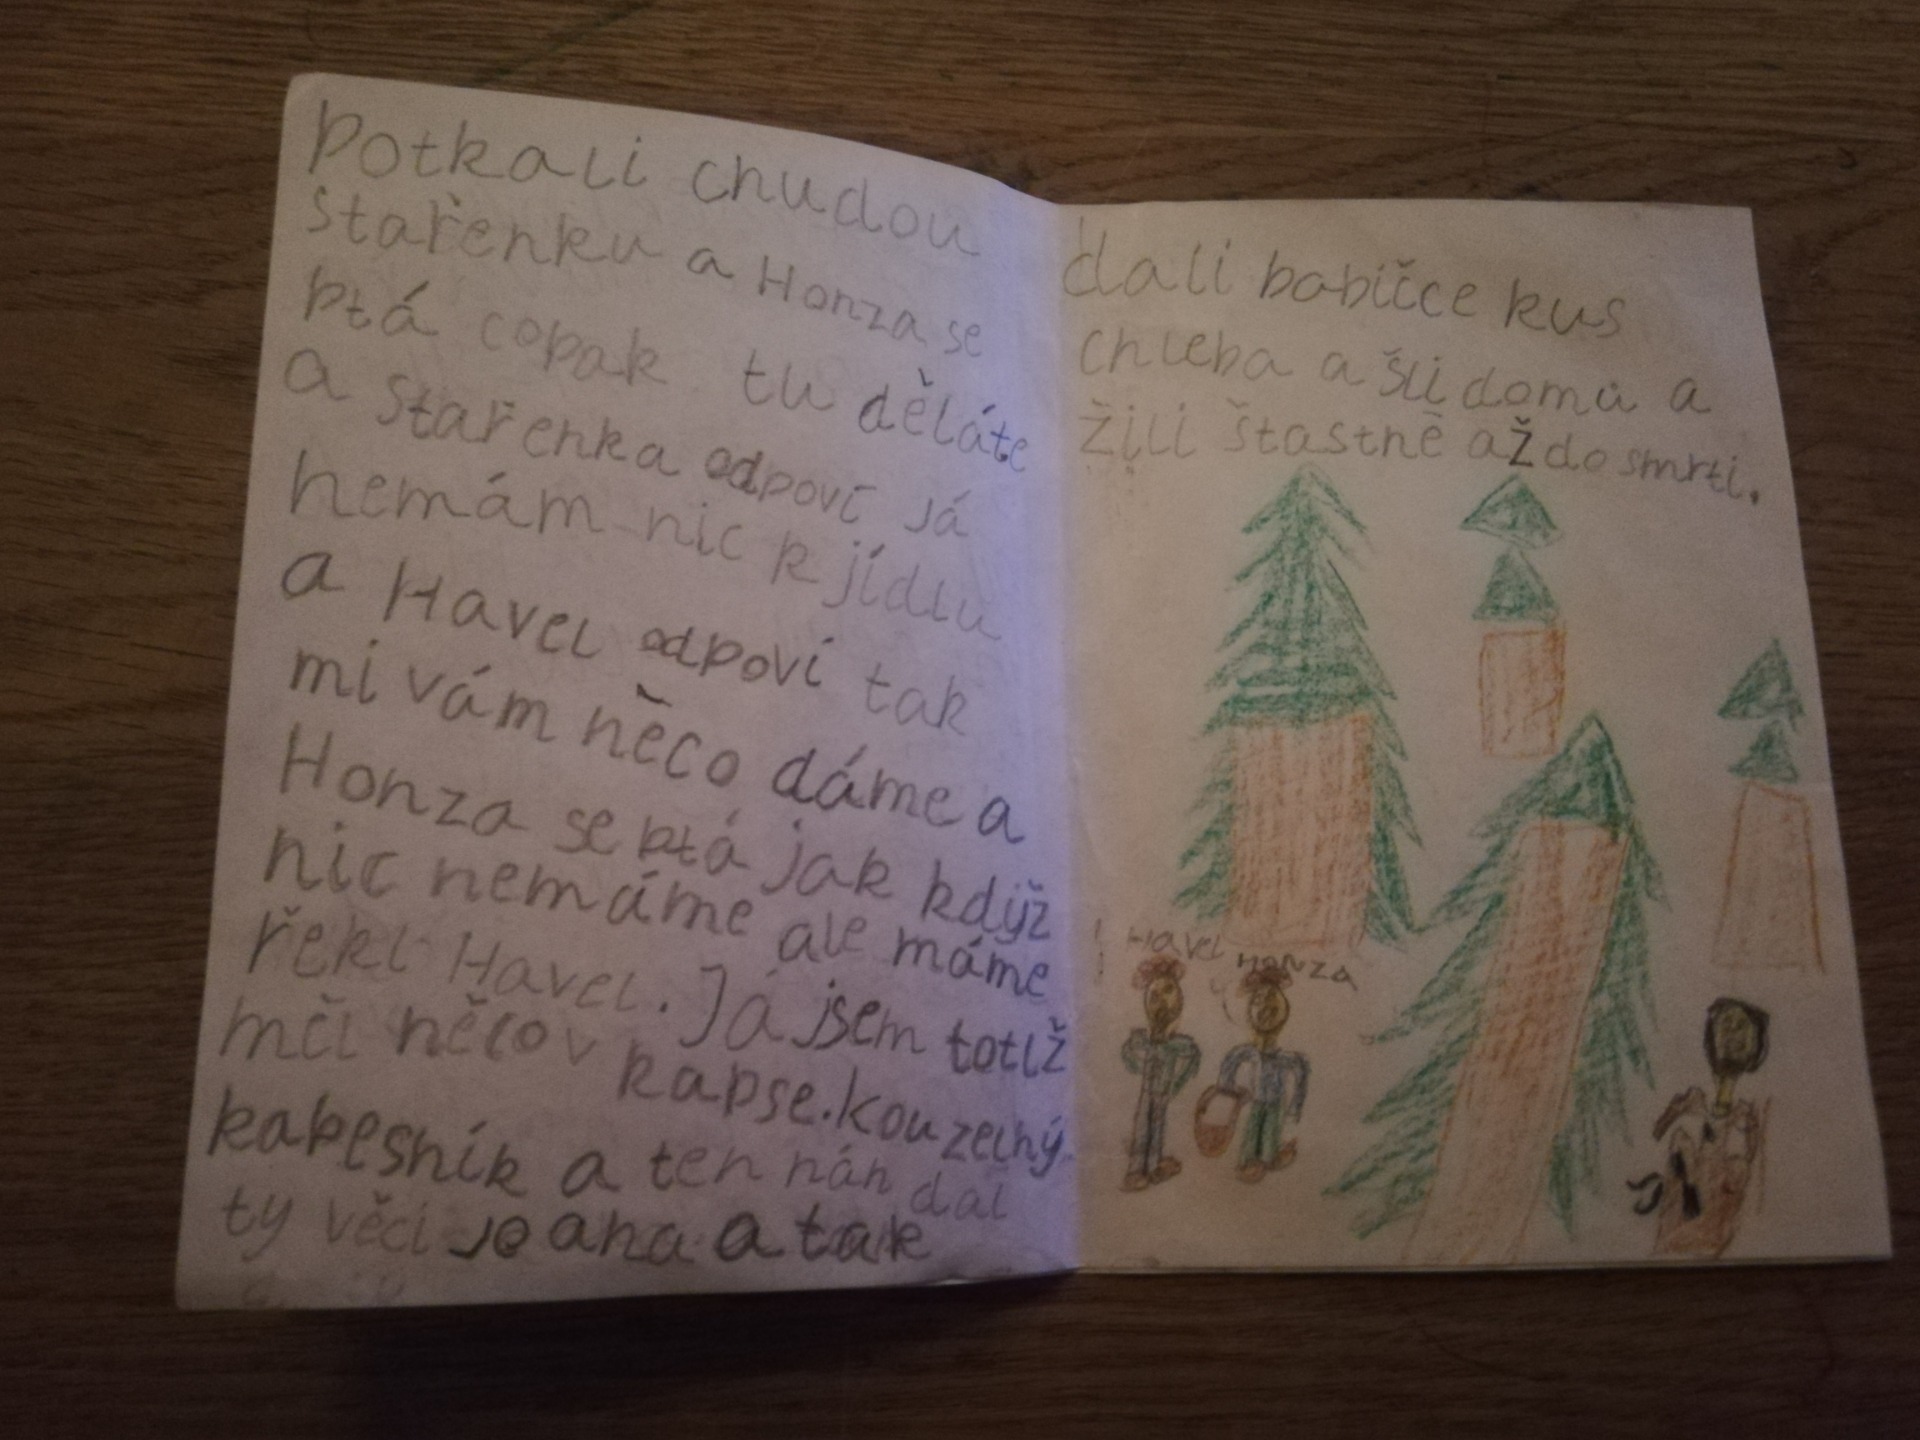 potkali chudou
stařenku a Honza se
ptá copak tu děláte
a stařenka odpoví já
nemám nic k jídlu
a Havel odpoví tak
mi vám něco dáme a
Honza se ptá jak když
nic nemáme ale máme
řekl Havel. Já jsem totiž
měi něco v kapse. kouzelný
kapesník a ten nán dal
ty věci jo aha a tak
dali babičce kus
chleba a šli domů a
žili štastně až do smrti.
Havel
HONZA